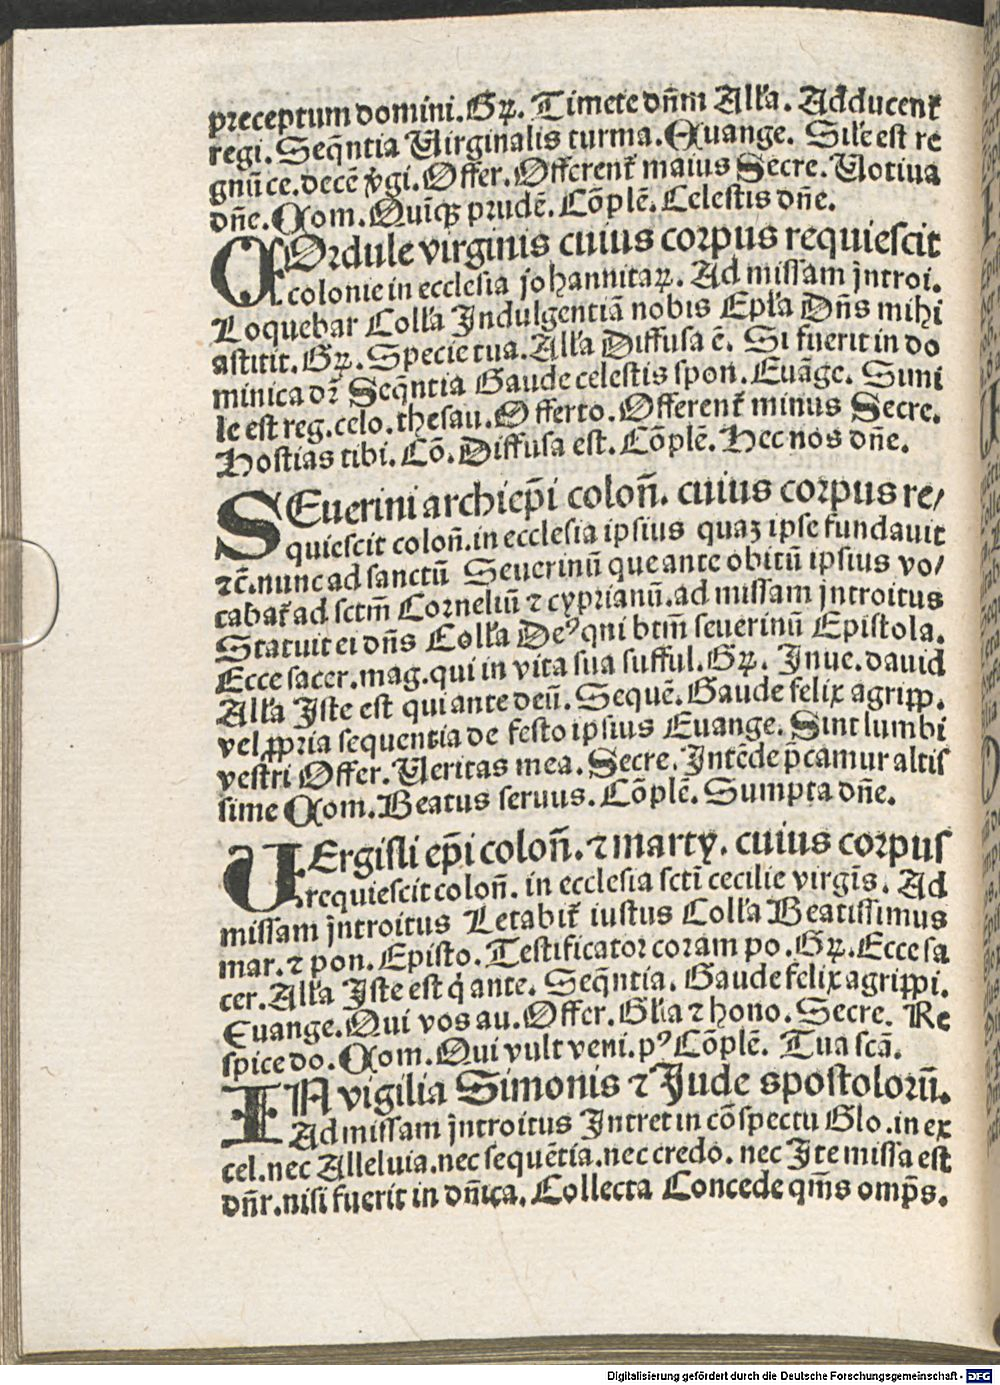 preceptum domini. Gꝝ. Timete dñm Alľa. Adducent᷑
regi. Seq̃ntia Uirginalis turma. Euange. Siľe est re
gnũ ce. decẽ v̾gi. Offer. Offerent᷑ maius Secre. Uotiua
dñe. Com. Quīqꝫ prudẽ. Cõplẽ. Celestis dñe.
COrdule virginis cuius corpus requiescit
colonie in ecclesia johannitaꝝ. Ad missam jntroi.
Loquebar Colľa Indulgentiã nobis Epľa Dñs mihi
astitit. Gꝝ. Specie tua. Alľa Diffusa ẽ. Si fuerit in do
minica dr̃ Seq̃ntia Gaude celestis spon. Euãge. Simi
le est reg. celo. thesau. Offerto. Offerent᷑ minus Secre.
Hostias tibi. Cõ. Diffusa est. Cõplẽ. Hec nos dñe.
SEuerini archiep̃i coloñ. cuius corpus re/
quiescit coloñ. in ecclesia ipsius quaꝫ ipse fundauit
⁊c̃. nunc ad sanctũ Seuerinũ que ante obitũ ipsius vo/
cabat᷑ ad sctm̃ Corneliũ ⁊ cyprianũ. ad missam jntroitus
Statuit ei dñs Colľa Deꝰ qui btm̃ seuerinũ Epistola.
Ecce sacer. mag. qui in vita sua sufful. Gꝝ. Inue. dauid
Alľa Iste est qui ante deũ. Sequẽ. Gaude felix agripp.
vel ꝓpria sequentia de festo ipsius Euange. Sint lumbi
vestri Offer. Ueritas mea. Secre. Intẽde p̃camur altis
sime Com. Beatus seruus. Cõplẽ. Sumpta dñe.
UErgisli ep̃i coloñ. ⁊ marty. cuius corpus
requiescit coloñ. in ecclesia scti̅ cecilie virgĩs. Ad
missam jntroitus Letabit᷑ iustus Colľa Beatissimus
mar. ⁊ pon. Episto. Testificator coram po. Gꝝ. Ecce sa
cer. Alľa Iste est q̇ ante. Seq̃ntia. Gaude felix agrippi.
Euange. Qui vos au. Offer. Gľia ⁊ hono. Secre. Re
spice do. Com. Qui vult veni. pꝰ Cõplẽ. Tua scã.
IN vigilia Simonis ⁊ Jude spostolorũ.
Ad missam jntroitus Intret in cõspectu Glo. in ex
cel. nec Alleluia. nec sequẽtia. nec credo. nec Ite missa est
dñr. nisi fuerit in dñica. Collecta Concede qm̃s omp̃s.
Digitalisierung gefördert durch die Deutsche Forschungsgemeinschaft - DFG